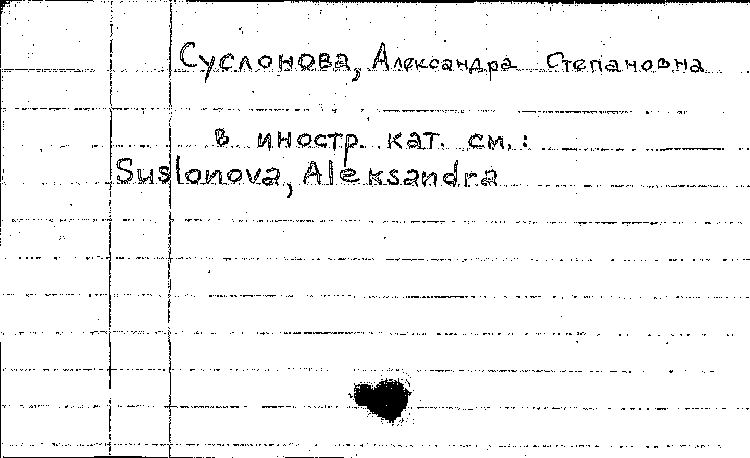 Суслонова, Александра Степановна
в иностр. кат. см.:
Suslonova, Aleksandra